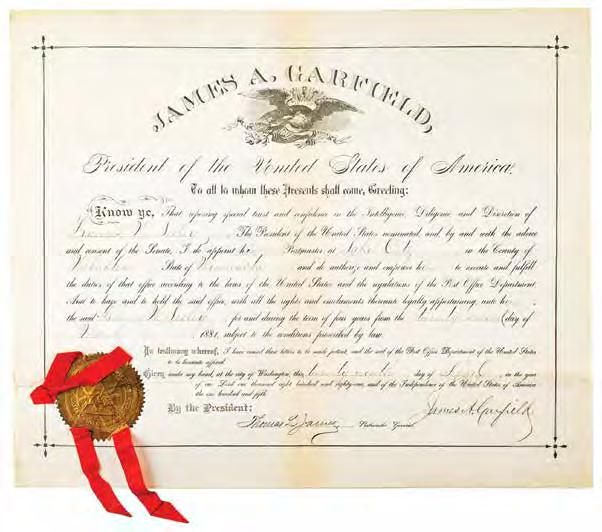 JAMES A. GARFIELD,
President of the United States of America.
To all to whom these Presents shall come, Greeting:
Know ye, That reposing special trust and confidence in the Intelligence, Diligence and Discretion of
The President of the United States nominated, and by and with the advice
and consent of the Senate, I do appoint him Postmaster at Lake City in the County of
Wabasha State of Minnesota and do authorize and empower him to execute and fulfill
the duties of that office according to the laws of the United States and the regulations of the Post Office Department
And to have and to hold the said office, with all the rights and emoluments thereunto legally appertaining, unto him
the said for and during the term of four years from the day of
1881, subject to the conditions prescribed by law.
In testimony whereof, I have caused these letters to be made patent, and the seal of the Post Office Department of the United States
to be hereunto affixed.
Given under my hand, at the city of Washington, this day of in the year
of our Lord one thousand eight hundred and eighty-one, and of the Independence of the United States of America
the one hundred and fifth.
By the President:
James A. Garfield
Thomas L. James Postmaster General.